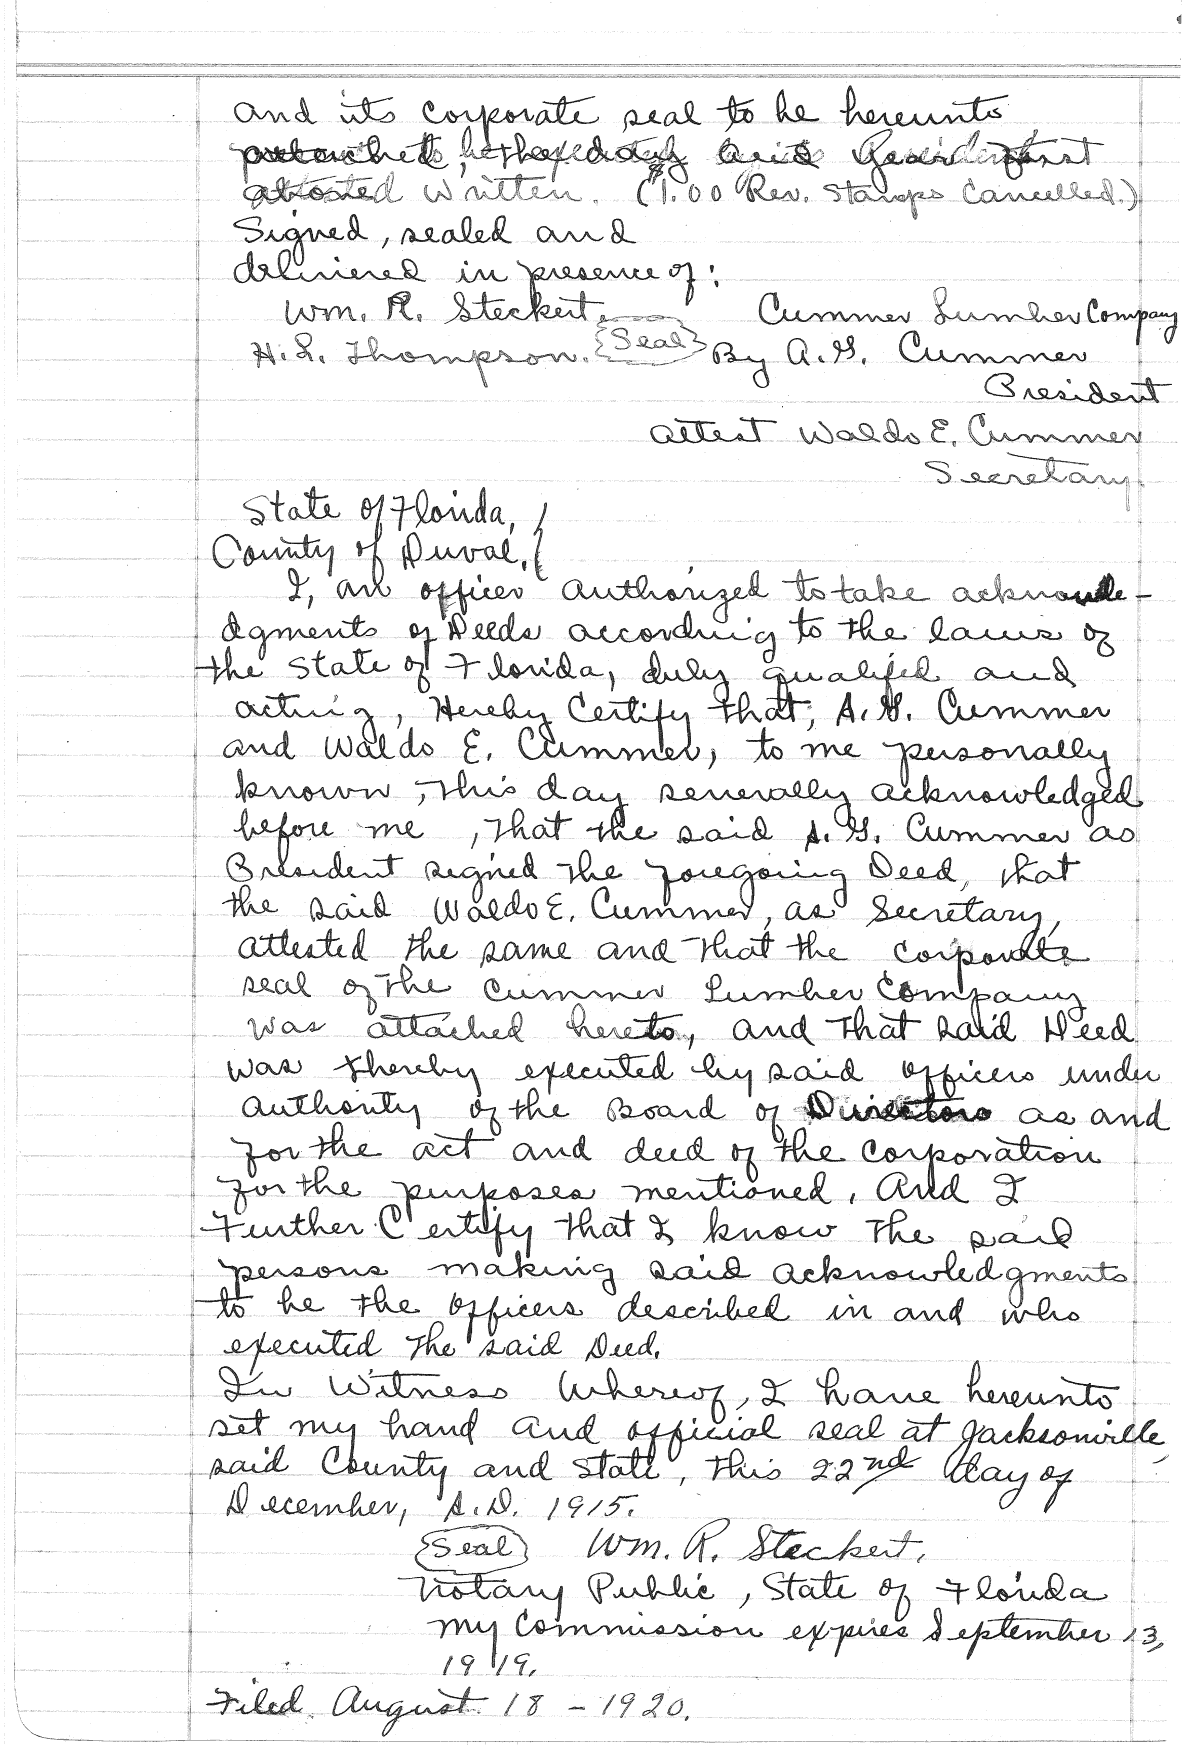 and its corporate seal to be hereunto
attached, the day and year first
above written. ($1.00 Rev. Stamps Cancelled.)
Signed, sealed and
delivered in presence of:
Wm. R. Steckert. Cummer Lumber Company
H. L. Thompson. {Seal} By A. G. Cummer
President
Attest Waldo E. Cummer
Secretary.
State of Florida,
County of Duval.
I, an officer authorized to take acknowle-
dgments of Deeds according to the laws of
the State of Florida, duly qualifed and
acting, Hereby Certify that, A. G. Cummer
and Waldo E. Cummer, to me personally
known, this day severally acknowledged
before me, that the said A. G. Cummer as
President signed the foregoing Deed, that
the said Waldo E. Cummer, as Secretary,
attested the same and that the corporate
seal of the Cummer Lumber Company
was attached hereto, and that said Deed
was thereby executed by said officers under
authority of the Board of Directors as and
for the act and deed of the corporation
for the purposes mentioned. And I
Further Certify that I know the said
persons making said acknowledgments
to be the officers described in and who
executed the said Deed.
In Witness Whereof, I have hereunto
set my hand and official seal at Jacksonville,
said County and State, this 22nd day of
December, A.D. 1915.
(Seal) Wm. R. Steckert,
Notary Public, State of Florida
my Commission expires September 13,
1919.
Filed August 18 - 1920.